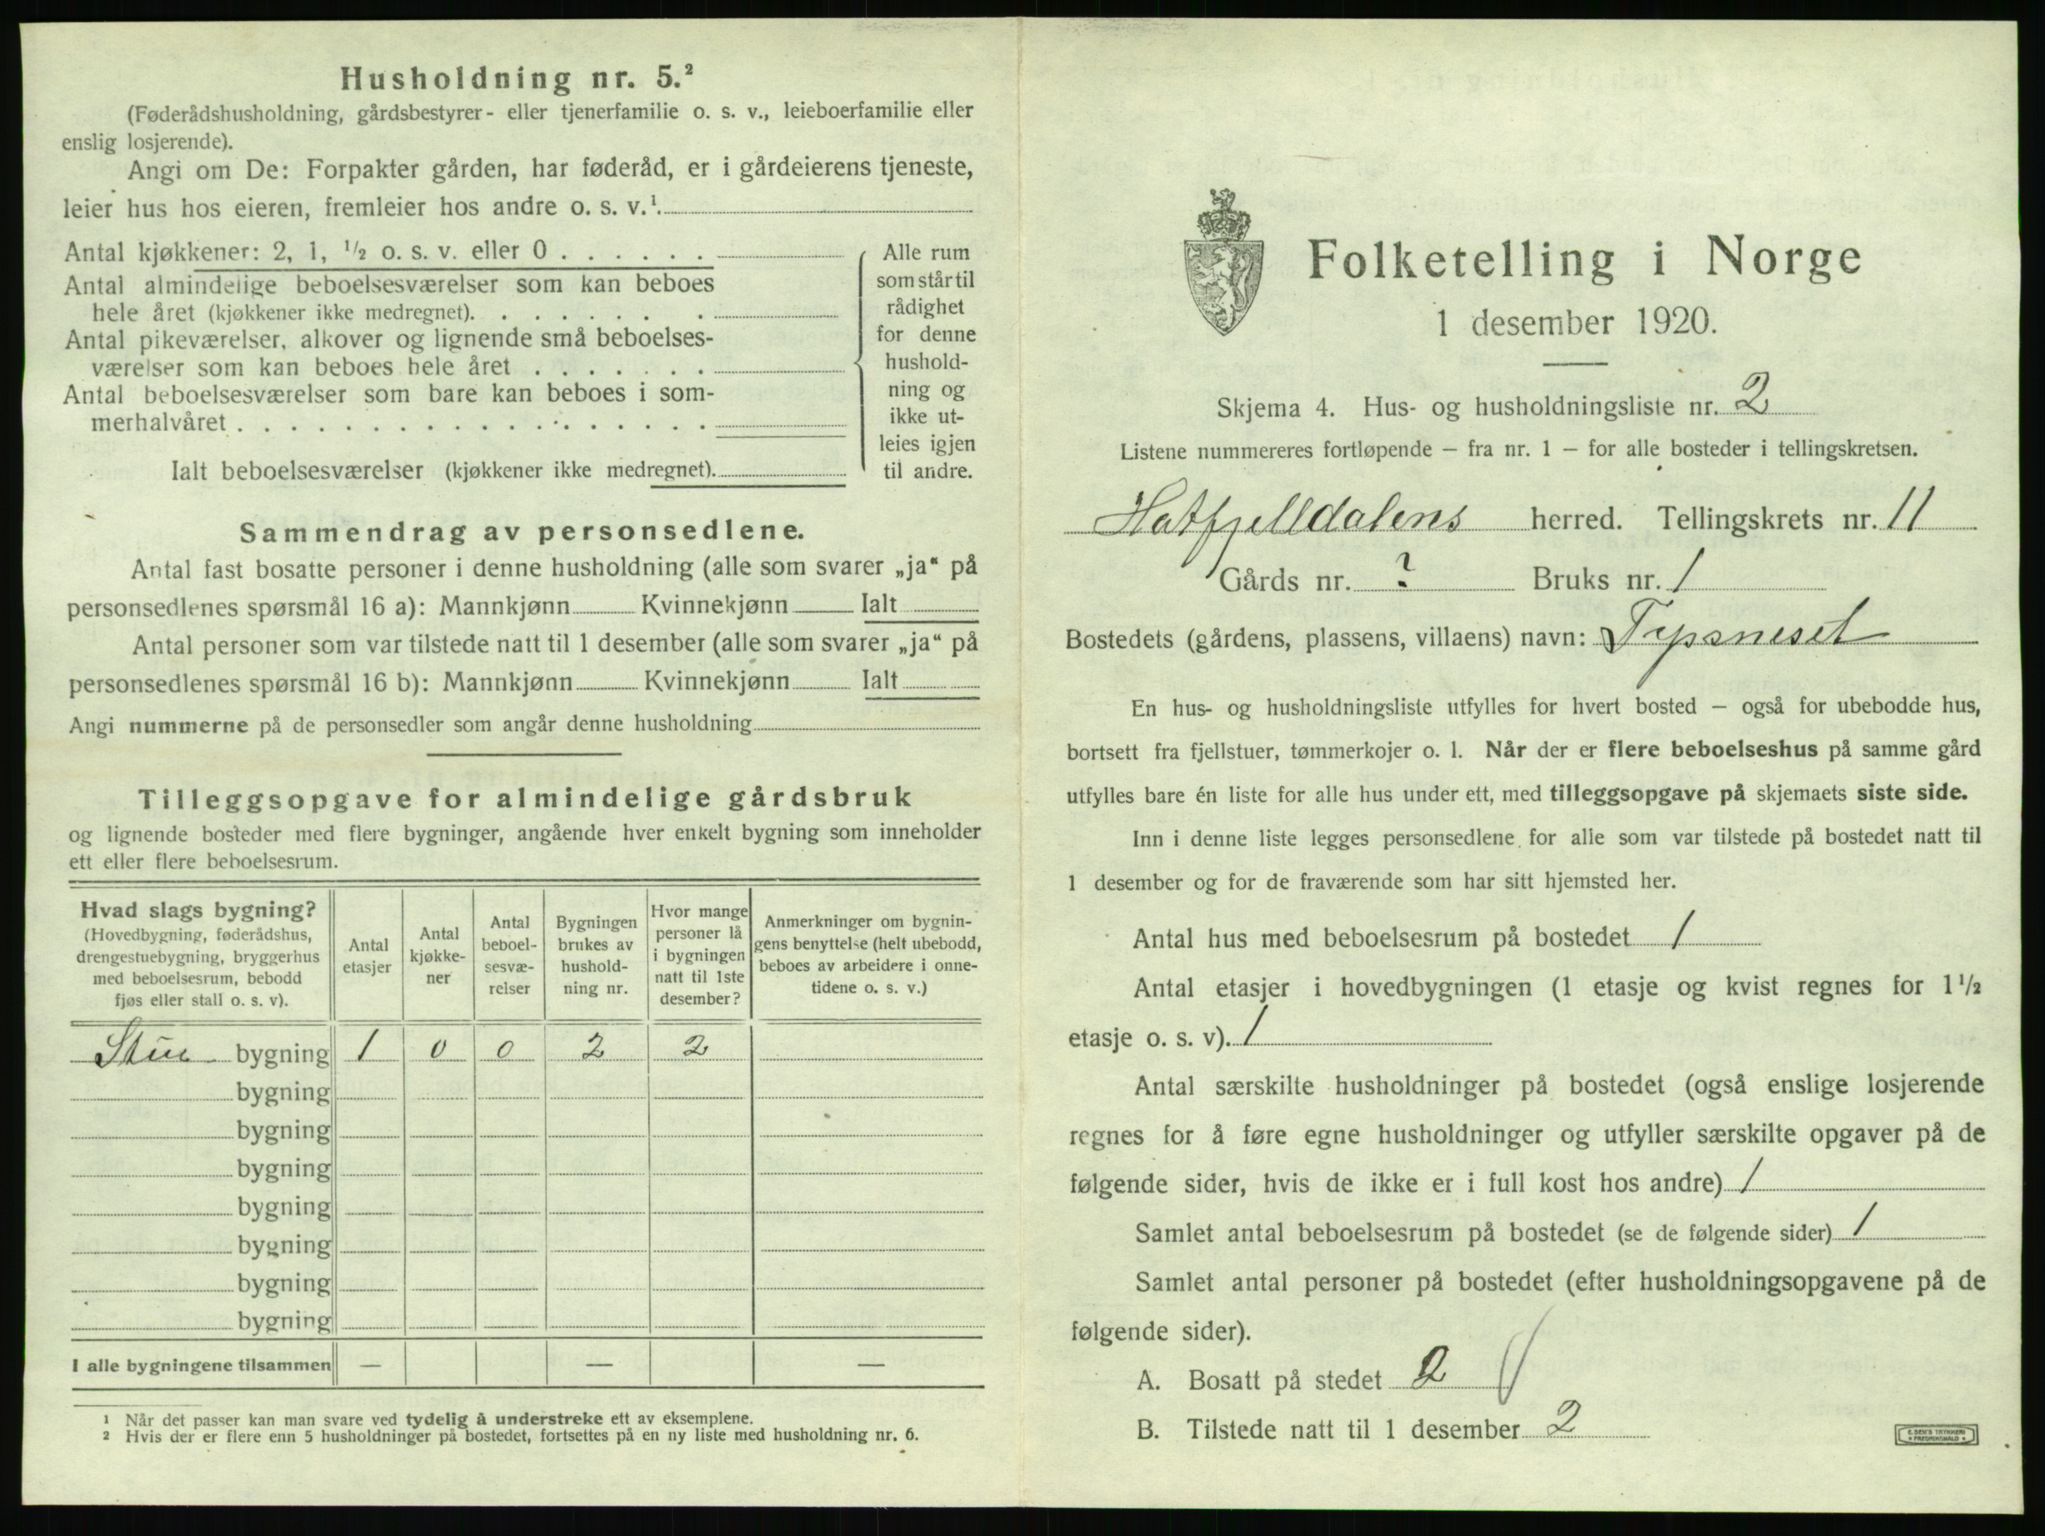 Husholdning nr. 5.²
(Føderådshusholdning, gårdsbestyrer- eller tjenerfamilie o. s. v., leieboerfamilie eller
enslig losjerende).
Angi om De: Forpakter gården, har føderåd, er i gårdeierens tjeneste,
leier hus hos eieren, fremleier hos andre o. s. v.¹
Antal kjøkkener: 2, 1, ½ o. s. v. eller 0 . . . . . .
Antal almindelige beboelsesværelser som kan beboes
hele året (kjøkkener ikke medregnet). . . . . . . .
Antal pikeværelser, alkover og lignende små beboelses-
værelser som kan beboes hele året . . . . . . .
Antal beboelsesværelser som bare kan beboes i som-
merhalvåret . . . . . . . . . . . . . . . . . .
Ialt beboelsesværelser (kjøkkener ikke medregnet).
Alle rum
som står til
rådighet
for denne
hushold-
ning og
ikke ut-
leies igjen
til andre.
Sammendrag av personsedlene.
Antal fast bosatte personer i denne husholdning (alle som svarer „ja“ på
personsedlenes spørsmål 16 a): Mannkjønn Kvinnekjønn Ialt
Antal personer som var tilstede natt til 1 desember (alle som svarer „ja“ på
personsedlenes spørsmål 16 b): Mannkjønn Kvinnekjønn Ialt
Angi nummerne på de personsedler som angår denne husholdning
Tilleggsopgave for almindelige gårdsbruk
og lignende bosteder med flere bygninger, angående hver enkelt bygning som inneholder
ett eller flere beboelsesrum.
Hvad slags bygning?
(Hovedbygning, føderådshus,
drengestuebygning, bryggerhus
med beboelsesrum, bebodd
fjøs eller stall o. s. v).
Antal
etasjer
Antal
kjøkke-
ner
Antal
beboel-
sesvæ-
relser
Bygningen
brukes av
hushold-
ning nr.
Hvor mange
personer lå
i bygningen
natt til 1ste
desember?
Anmerkninger om bygnin-
gens benyttelse (helt ubebodd,
beboes av arbeidere i onne-
tidene o. s. v.)
Stue bygning 1 0 0 2 2
bygning
bygning
bygning
bygning
bygning
bygning
bygning
I alle bygningene tilsammen — — —
1 Når det passer kan man svare ved tydelig å understreke ett av eksemplene.
2 Hvis der er flere enn 5 husholdninger på bostedet, fortsettes på en ny liste med husholdning nr. 6.
Folketelling i Norge
1 desember 1920.
Skjema 4. Hus- og husholdningsliste nr. 2
Listene nummereres fortløpende — fra nr. 1 — for alle bosteder i tellingskretsen.
Hatfjelldalens herred. Tellingskrets nr. 11
Gårds nr. ? Bruks nr. 1
Bostedets (gårdens, plassens, villaens) navn: Typsneset
En hus- og husholdningsliste utfylles for hvert bosted — også for ubebodde hus,
bortsett fra fjellstuer, tømmerkojer o. l. Når der er flere beboelseshus på samme gård
utfylles bare én liste for alle hus under ett, med tilleggsopgave på skjemaets siste side.
Inn i denne liste legges personsedlene for alle som var tilstede på bostedet natt til
1 desember og for de fraværende som har sitt hjemsted her.
Antal hus med beboelsesrum på bostedet 1
Antal etasjer i hovedbygningen (1 etasje og kvist regnes for 1½
etasje o. s. v). 1
Antal særskilte husholdninger på bostedet (også enslige losjerende
regnes for å føre egne husholdninger og utfyller særskilte opgaver på de
følgende sider, hvis de ikke er i full kost hos andre) 1
Samlet antal beboelsesrum på bostedet (se de følgende sider) 1
Samlet antal personer på bostedet (efter husholdningsopgavene på de
følgende sider).
A. Bosatt på stedet 2
B. Tilstede natt til 1 desember 2